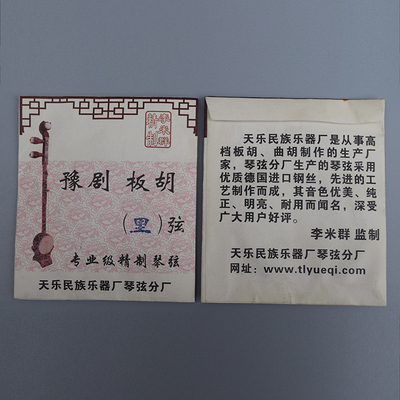 李米群
精制
豫剧 板胡
(里)弦
专业级精制琴弦
天乐民族乐器厂琴弦分厂
天乐民族乐器厂是从事高
档板胡、曲胡制作的生产厂
家，琴弦分厂生产的琴弦采用
优质德国进口钢丝，先进的工
艺制作而成，其音色优美、纯
正、明亮、耐用而闻名，深受
广大用户好评。
李米群 监制
天乐民族乐器厂琴弦分厂
网址：www.tlyueqi.com